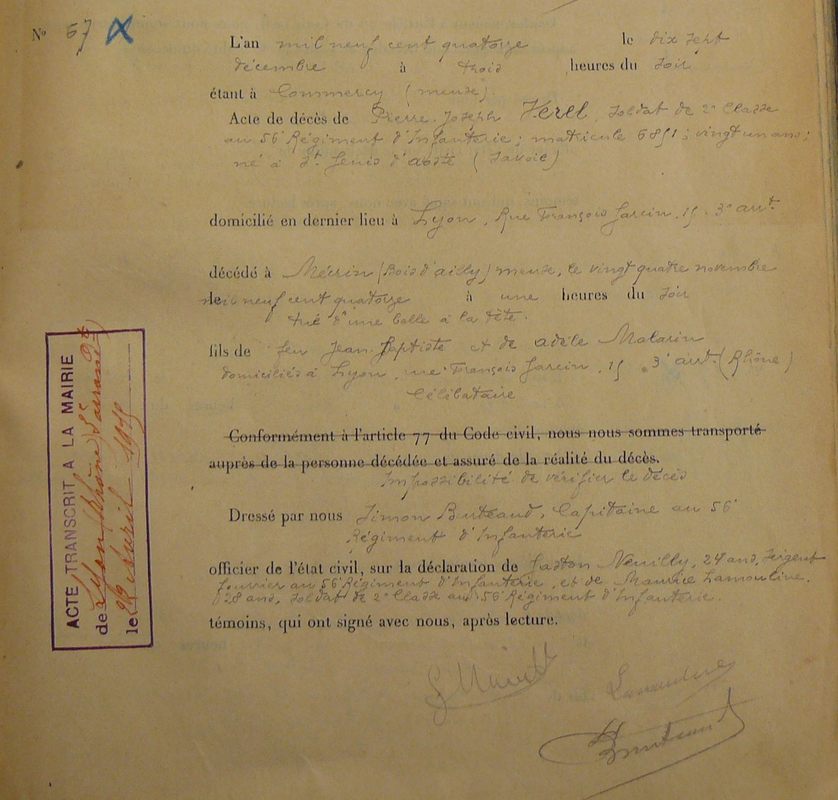 N° 57
L'an mil neuf cent quatorze le dix sept
décembre à trois heures du soir
étant à Commercy (Meuse).
Acte de décès de Pierre Joseph Verel, soldat de 2e Classe
au 56e Régiment d'Infanterie; matricule 6851; vingt un ans;
né à St Genis d'aoste (Savoie)
domicilié en dernier lieu à Lyon, Rue François Garcin, 15. 3e arrt.
décédé à Mécrin (Bois d'ailly) meuse, le vingt quatre novembre
le mil neuf cent quatorze à une heures du soir
tué d'une balle à la tête.
fils de feu Jean-Baptiste et de adèle Malarin
domiciliés à Lyon, rue François Garcin, 15. 3e arrt. (Rhône)
Célibataire
Conformément à l'article 77 du Code civil, nous nous sommes transporté
auprès de la personne décédée et assuré de la réalité du décès.
Impossibilité de vérifier le décès
Dressé par nous Simon Buteaud, Capitaine au 56e
Régiment d'Infanterie
officier de l'état civil, sur la déclaration de Gaston Neuilly, 24 ans, Sergent
fourrier au 56e Régiment d'Infanterie, et de Maurice Lamouline.
28 ans, soldat de 2e Classe au 56e Régiment d'Infanterie.
témoins, qui ont signé avec nous, après lecture.
ACTE TRANSCRIT A LA MAIRIE
de Lyon (Rhône)
le 22 avril 1915